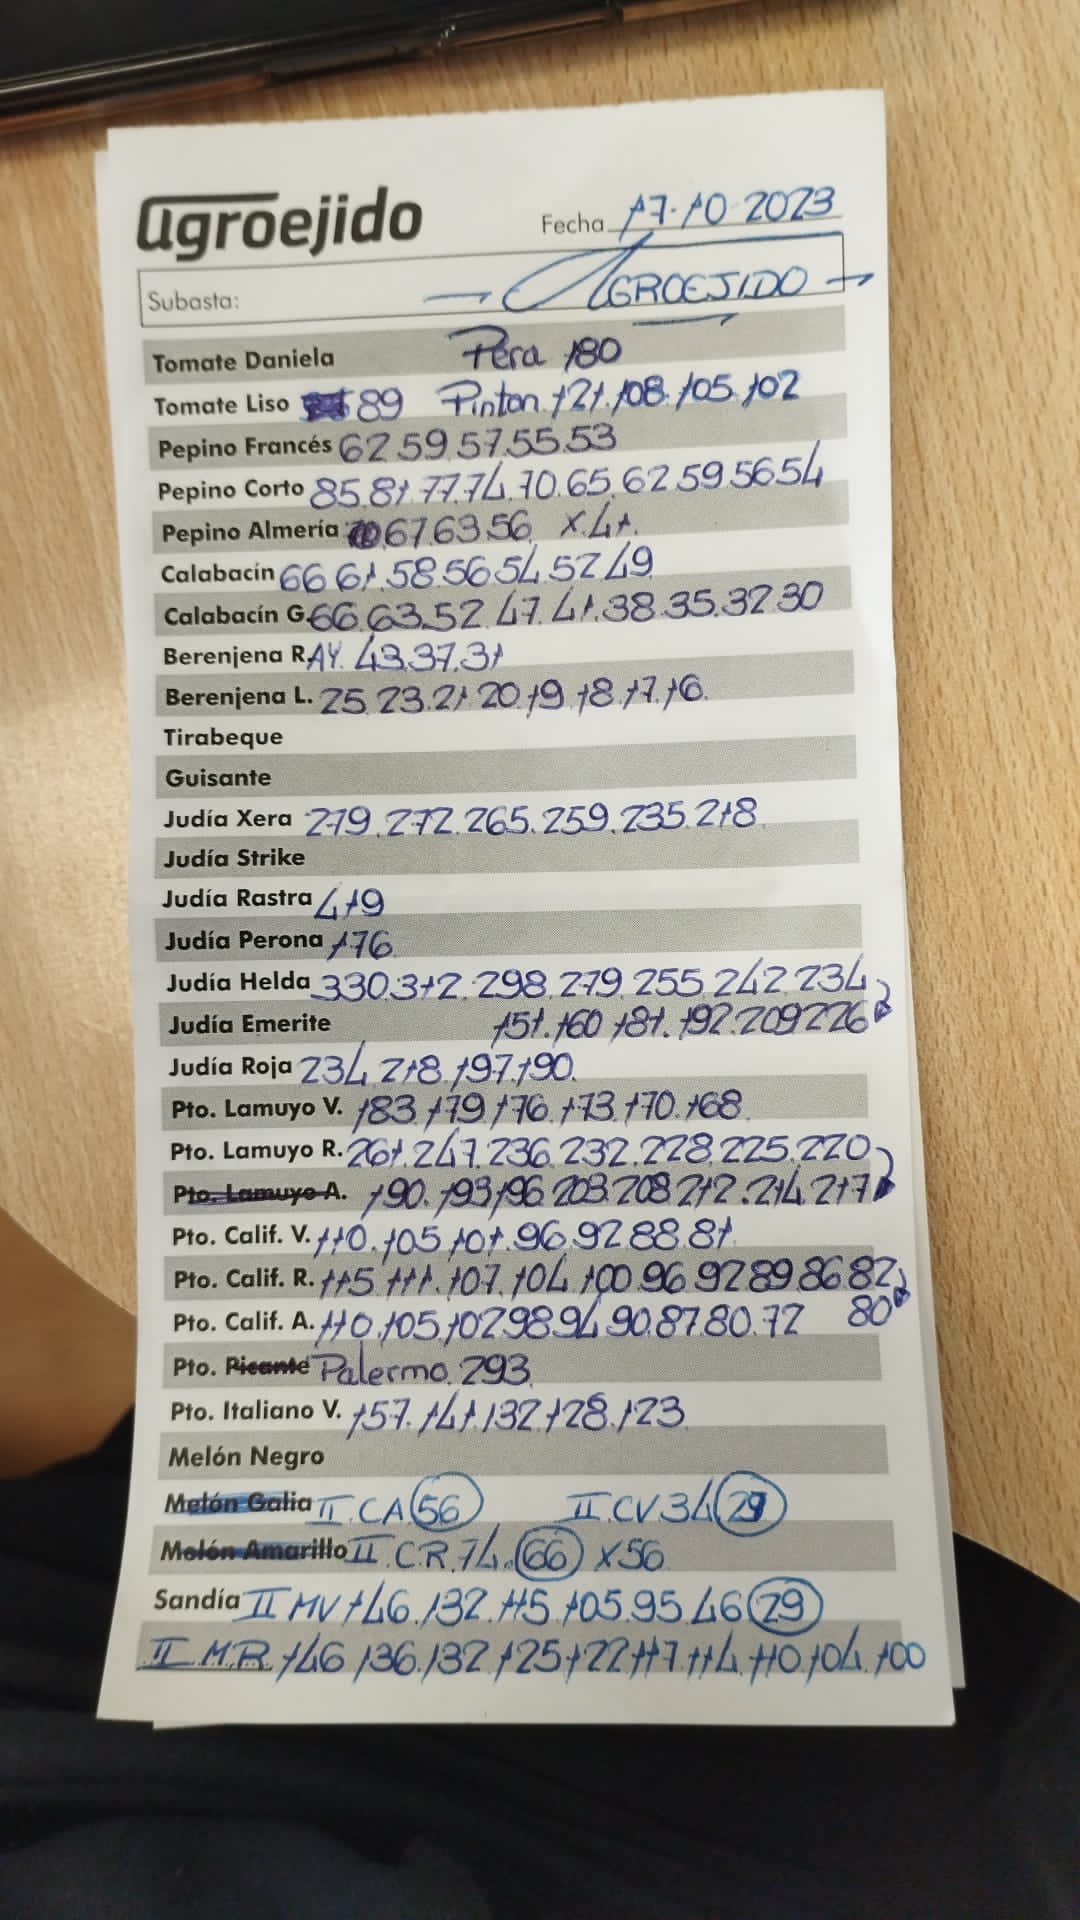 agroejido Fecha 17-10-2023
Subasta: → AGROEJIDO →
Tomate Daniela Pera 180
Tomate Liso 89 Pinton. 121. 108. 105. 102
Pepino Francés 62.59.57.55.53
Pepino Corto 85.81.77.74.70.65.62.59.56.54
Pepino Almería 67.63.56 X.41.
Calabacín 66.61.58.56.54.52.49
Calabacín G. 66.63.52.47.41.38.35.32.30
Berenjena R. AY. 43.37.31
Berenjena L. 25.23.21.20.19.18.17.16.
Tirabeque
Guisante
Judía Xera 279.272.265.259.235.218
Judía Strike
Judía Rastra 419
Judía Perona 176
Judía Helda 330.312.298.279.255.242.234
Judía Emerite 151.160.181.192.209.226
Judía Roja 234.218.197.190.
Pto. Lamuyo V. 183.179.176.173.170.168
Pto. Lamuyo R. 261.247.236.232.228.225.220
Pto. Lamuyo A. 190.193.196.203.208.212.214.217
Pto. Calif. V. 110.105.101.96.92.88.81
Pto. Calif. R. 115.111.107.104.100.96.92.89.86.82
Pto. Calif. A. 110.105.102.98.94.90.87.80.72 80
Pto. Picante Palermo. 293
Pto. Italiano V. 157.141.132.128.123
Melón Negro
Melón Galia II.CA 56 II CV.34 29
Melón Amarillo II C.R.74.66 X56
Sandía II MV 146.132.115.105.95.46 29
II M.R 146.136.132.125.122.117.114.110.104.100